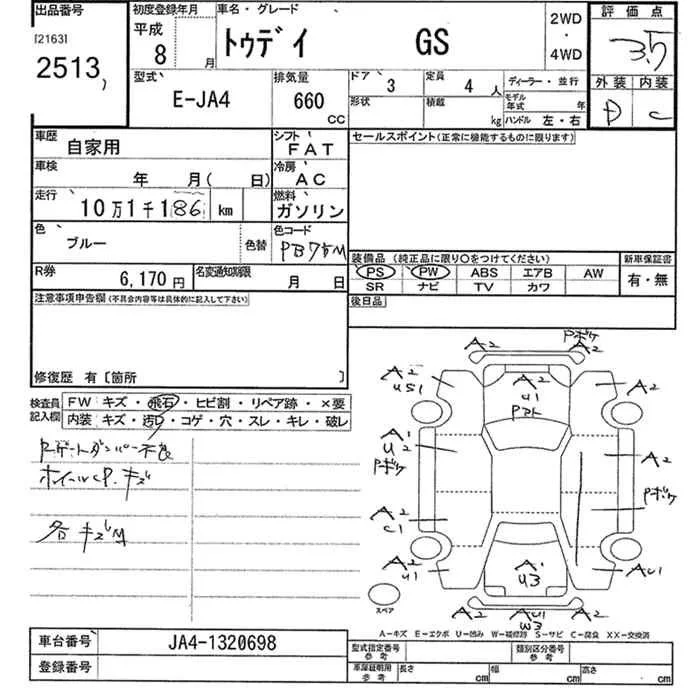 出品番号
[2163]
2513
初度登録年月
平成
8 月
車名・グレード
トゥデイ GS
2WD
・
4WD
評価点
3.5
外装 内装
D C
型式
E-JA4
排気量
660
CC
ドア 3
定員 4 人
形状
積載 kg
ディーラー・並行
モデル年式 年
ハンドル 左・右
車歴 自家用
シフト FAT
車検 年 月( 日)
冷房 AC
走行 10万1千186 km
燃料 ガソリン
色 ブルー 色替
色コード PB75M
R券 6,170円
名変通知期限 月 日
セールスポイント(正常に機能するものに限ります)
装備品 (純正品に限り○をつけてください)
PS PW ABS エアB AW
SR ナビ TV カワ
新車保証書
有・無
後日品
注意事項申告欄(不具合内容等は具体的に記入して下さい)
修復歴 有〔箇所 〕
検査員記入欄
FW キズ・飛石・ヒビ割・リペア跡・×要
内装 キズ・汚れ・コゲ・穴・スレ・キレ・破レ
Rゲートダンパー不良
ホイールCP.キズ
各キズM
A2
Pボケ
A2
A2
US1
A2
U1
A2
A1
U2
Pボケ
A2
Pボケ
A2
C1
A2
U1
A1
U3
AU1
スペア
A2
AU1
W3
A2
A-キズ E-エクボ U-凹み W-補修跡 S-サビ C-腐食 XX-交換済
車台番号 JA4-1320698
登録番号
型式指定番号
参考
類別区分番号
参考
車庫証明用
参考
長さ cm
幅 cm
高さ cm